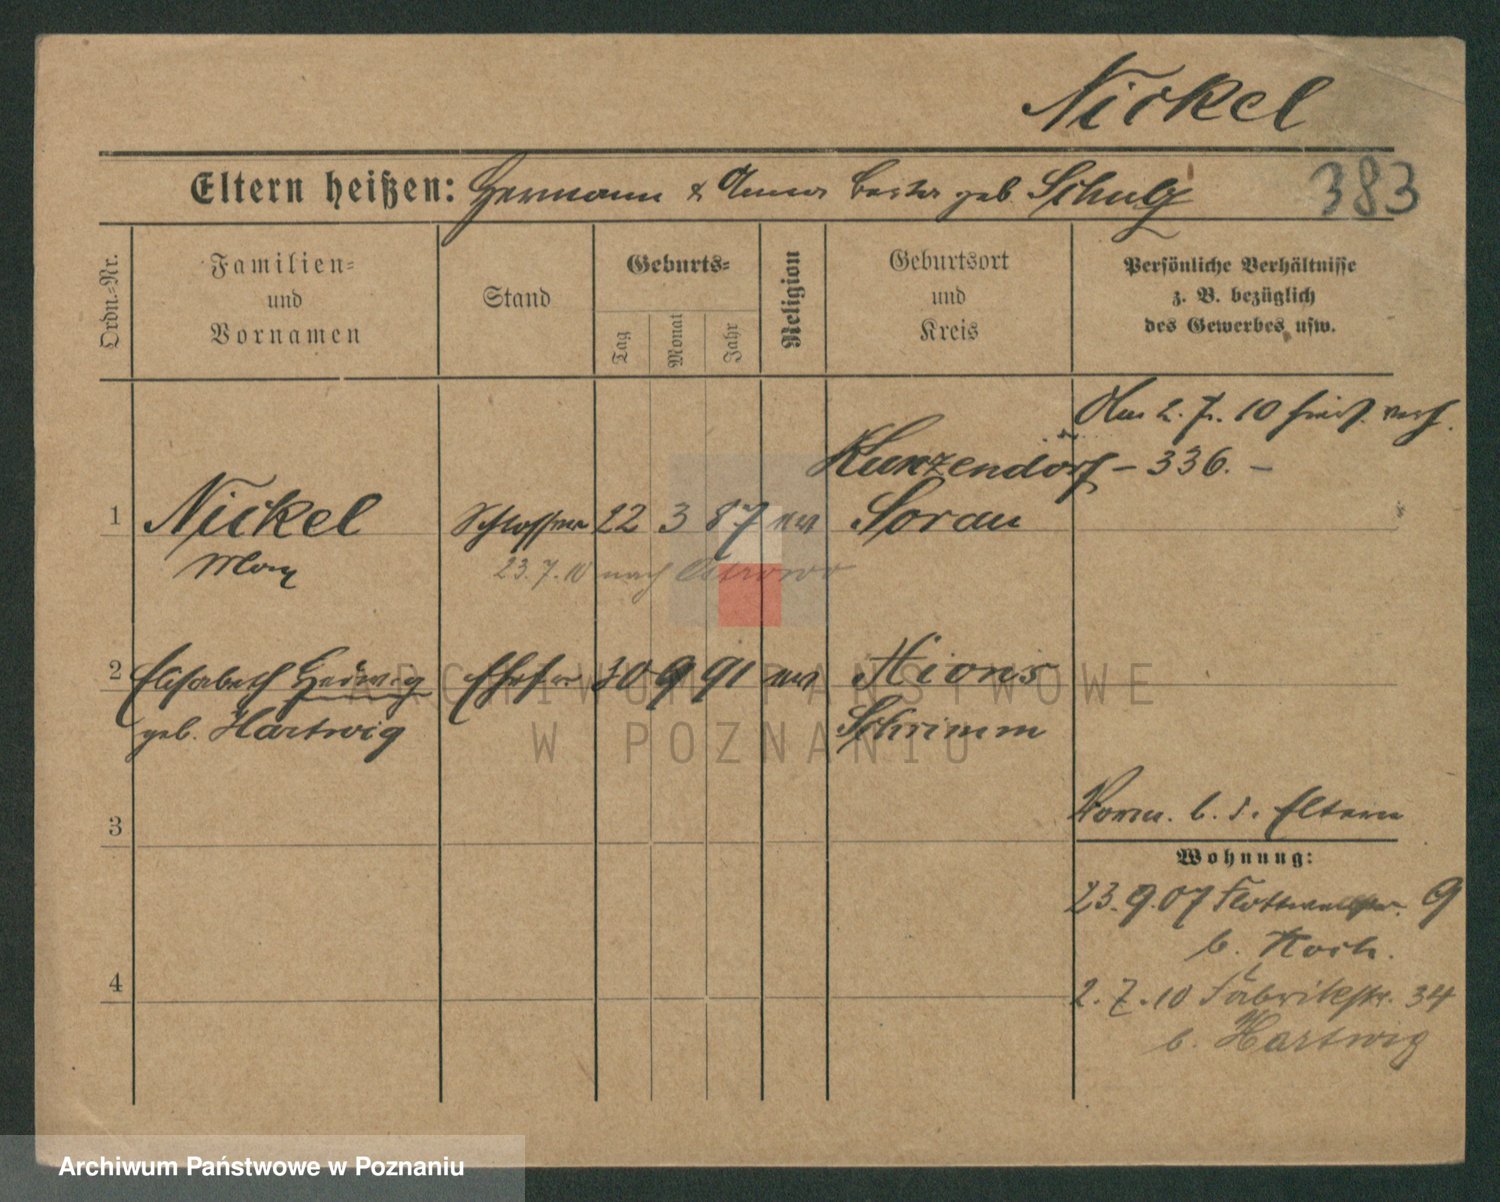 Nickel
Eltern heißen: Hermann & Anna Berta geb Schulz
383
Ordn.-Nr.
Familien-
und
Vornamen
Stand
Geburts-
Tag
Monat
Jahr
Religion
Geburtsort
und
Kreis
Persönliche Verhältnisse
z. B. bezüglich
des Gewerbes usw.
Am 2. 7. 10 hier verh.
Kunzendorf – 336. –
1 Nickel Schlosser 22 3 87 ev Sorau
Max
23.7.10 nach Ostrowo
2 Elisabeth Hedwig Ehefr 30 9 91 ev Xions
geb. Hartwig Schrimm
3
Vorm. b. d. Eltern
Wohnung:
23.9.07 Flottwellstr. 9
b. Koch.
4
2.7.10 Fabrikstr. 34
b. Hartwig
ARCHIWUM PAŃSTWOWE
W POZNANIU
Archiwum Państwowe w Poznaniu